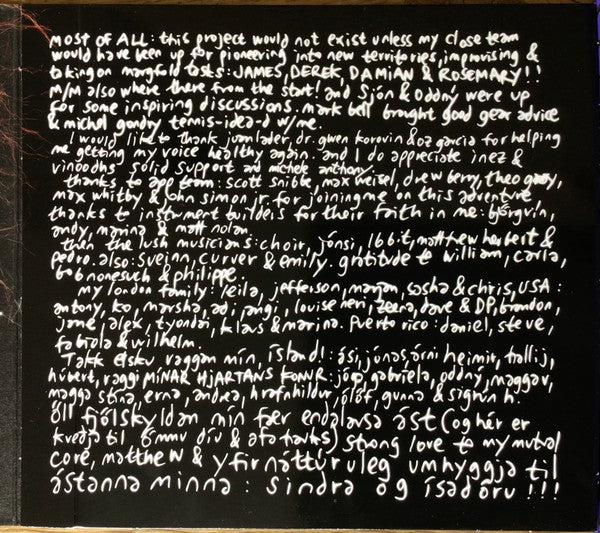 MOST OF ALL: this project would not exist unless my close team
would have been up for pioneering into new territories, improvising &
taking on margfold tasts: JAMES, DEREK, DAMIAN & ROSEMARY!!
M/M also where there from the start! and Sjón & Oddný were up
for some inspiring discussions. mark bell brought good gear advice
& michel gondry tennis-idea-d w/me.
I would like to thank juanlader, dr. gwen korovin & oz garcia for helping
me getting my voice healthy again. and I do appreciate inez &
vinoodhs solid support and michele anthony.
thanks to app team: scott snible, max weisel, drew berry, theo gray,
max whitby & john simon jr. for joining me on this adventure
thanks to instrument builders for their faith in me: björgvin,
andy, marina & matt nolan.
then the lush musicians: choir, jónsi, 16bit, matthew herbert &
pedro. also: sveinn, curver & emily. gratitude to william, carla,
bob nonesuch & philippe.
my london family: leila, jefferson, marjan, sasha & chris, USA:
antony, ko, marsha, adi, jangi, louise neri, zeena, dave & DP, brandon,
jane, alex, tyondai, klaus & marina. Puerto rico: daniel, steve,
fabiola & wilhelm.
Takk elsku vaggan mín, ísland!: ási, jónas, árni heimir, trallij,
húbert, raggi MÍNAR HJARTANS KONUR: jóga, gabriela, oddný, maggav,
magga stína, erna, andrea, hrafnhildur, ólöf, gunna & sigrún h.
öll fjölskyldan mín fær endalausa ást (og hér er
kveðja til ömmu dív & afa) strong love to my mutual
core, matthew & yfirnáttúruleg umhyggja til
ástanna minna: sindra og ísadóru !!!